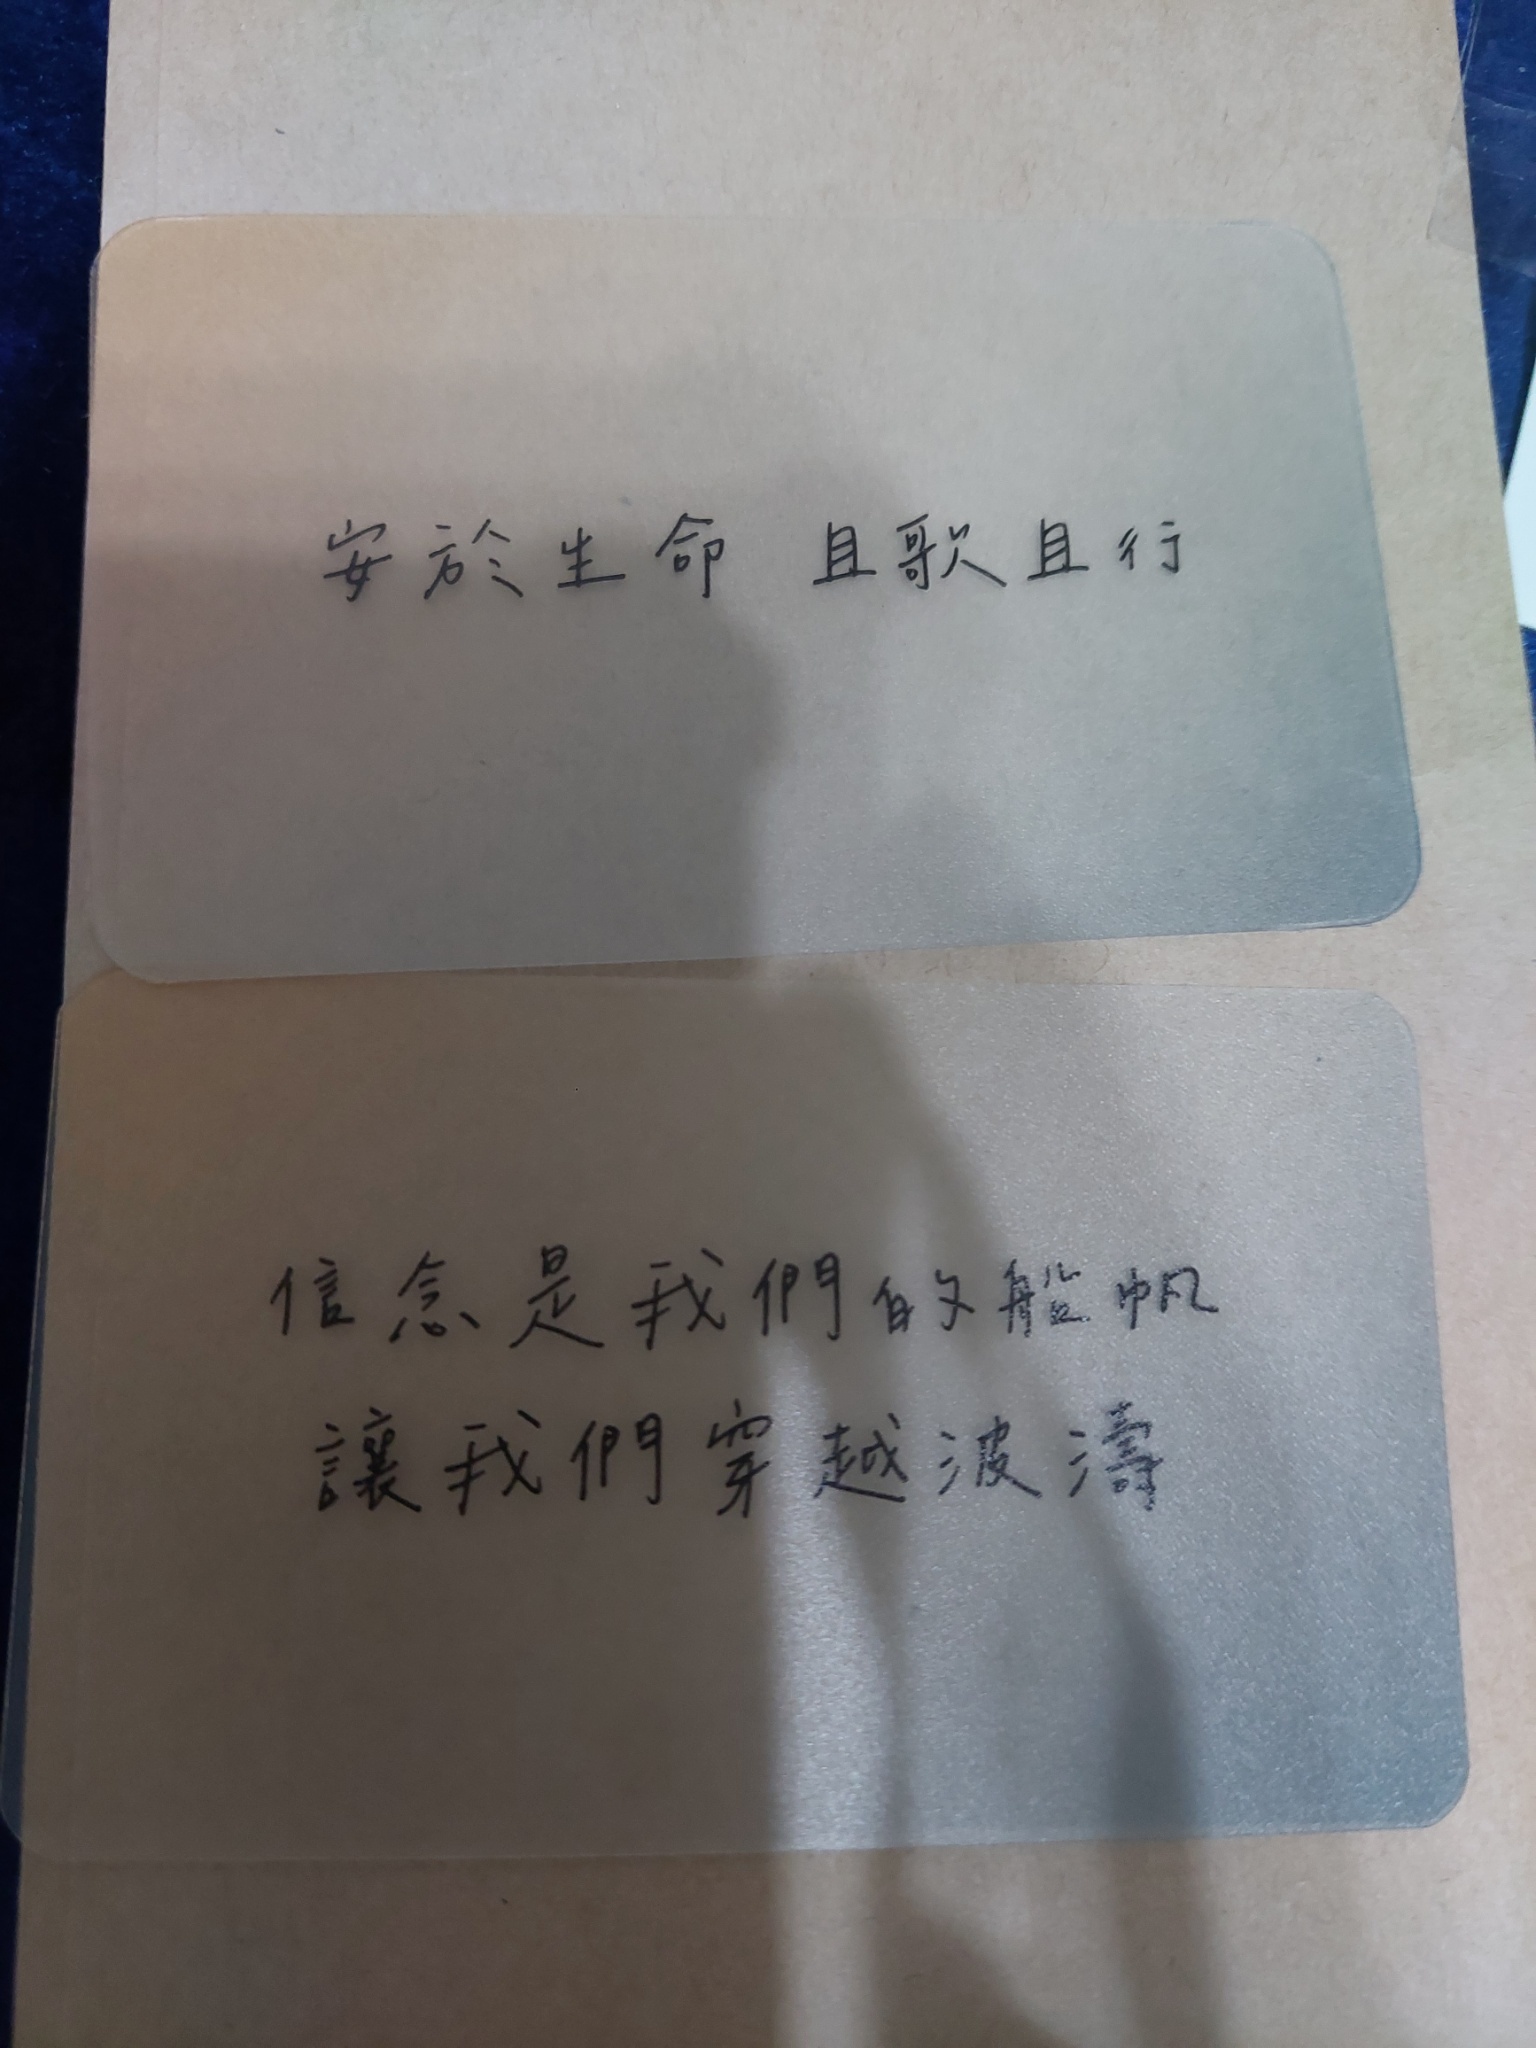 安於生命 且歌且行
信念是我們的船帆
讓我們穿越波濤